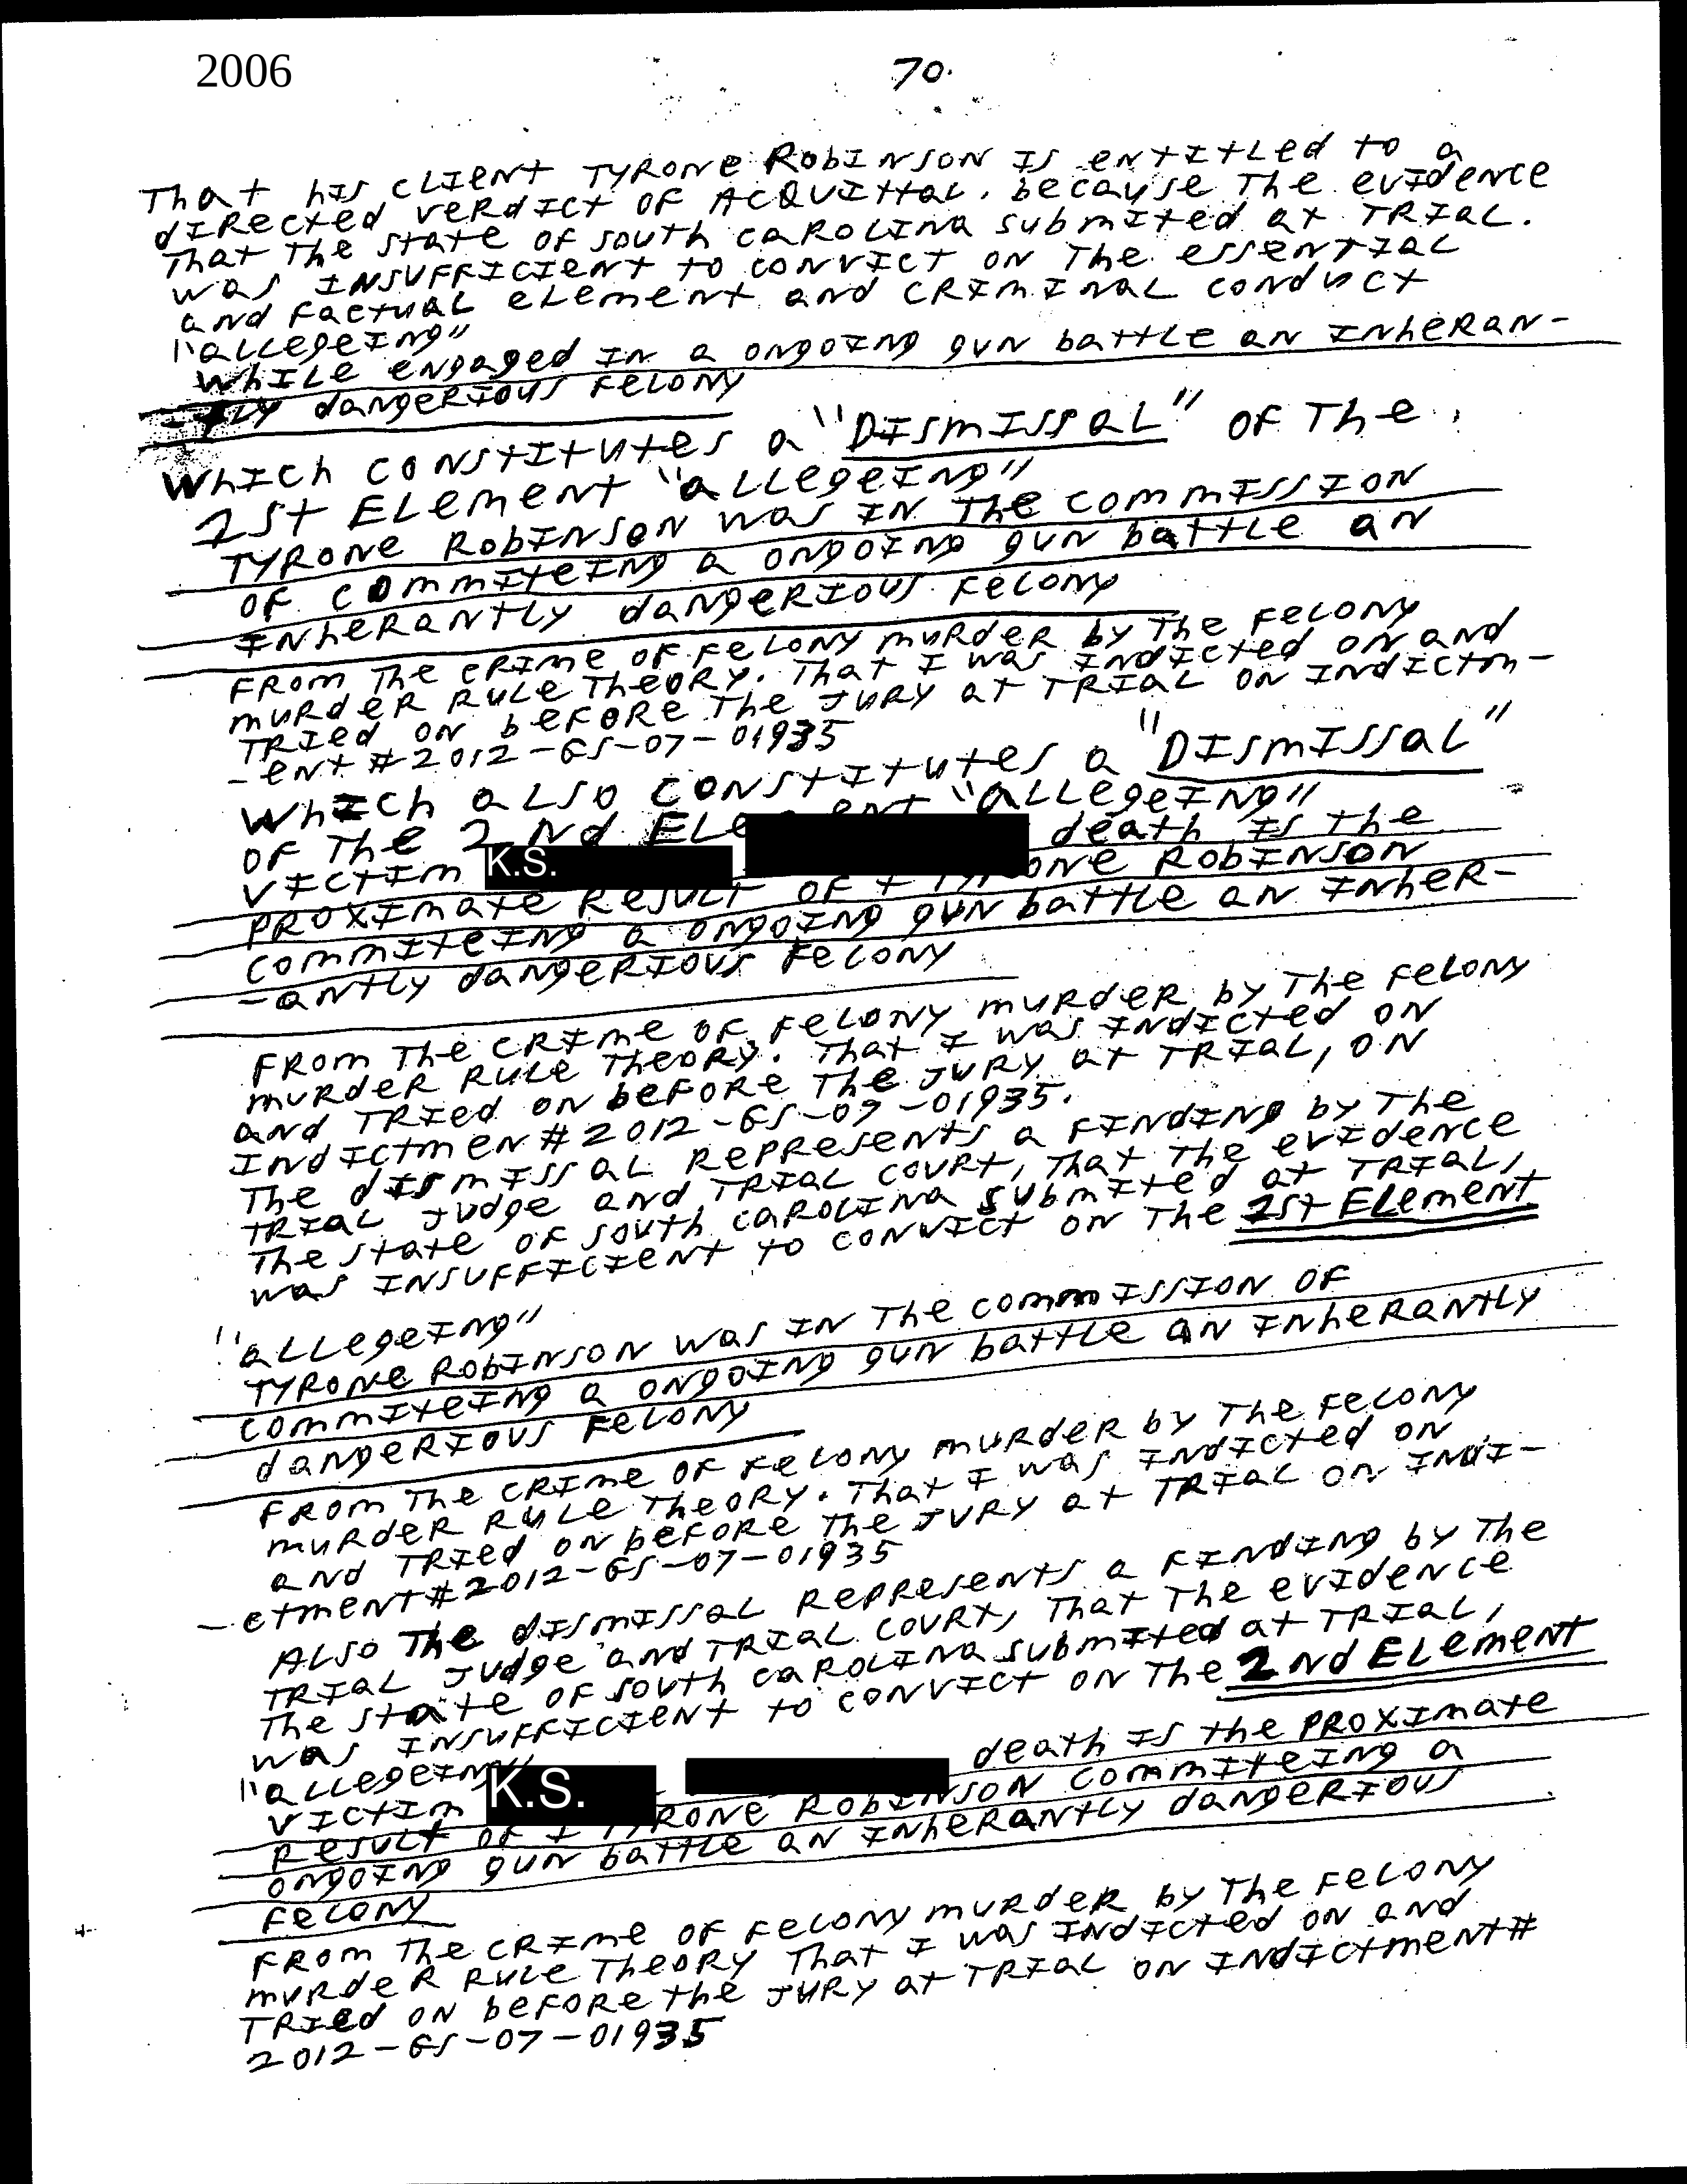 2006
70.
That his client Tyrone Robinson is entitled to a
directed verdict of acquittal. because the evidence
that the state of south carolina submited at trial.
was insufficient to convict on the essential
and factual element and criminal conduct
"allegeing"
while engaged in a ongoing gun battle an inheran-
-tly dangerious felony
which constitutes a "Dismissal" of the
1st Element "allegeing"
Tyrone Robinson was in the commission
of commiteing a ongoing gun battle an
inherantly dangerious felony
From the crime of felony murder by the felony
murder rule theory. that I was indicted on and
tried on before the jury at trial on indictm-
-ent # 2012-GS-07-01935
which also constitutes a "Dismissal"
of the 2nd Element "allegeing"
victim K.S. death is the
proximate result of I Tyrone Robinson
commiteing a ongoing gun battle an inher-
-antly dangerious felony
From the crime of felony murder by the felony
murder rule theory. that I was indicted on
and tried on before the jury at trial, on
Indictmen # 2012-GS-07-01935.
The dismissal represents a finding by the
trial judge and trial court, that the evidence
the state of south carolina submited at trial,
was insufficient to convict on the 1st Element
"allegeing"
Tyrone Robinson was in the commission of
commiteing a ongoing gun battle an inherantly
dangerious felony
From the crime of felony murder by the felony
murder rule theory. that I was indicted on
and tried on before the jury at trial on indi-
-ctment # 2012-GS-07-01935
Also the dismissal represents a finding by the
trial judge and trial court, that the evidence
the state of south carolina submited at trial,
was insufficient to convict on the 2nd Element
"allegeing"
victim K.S. death is the proximate
result of I Tyrone Robinson commiteing a
ongoing gun battle an inherantly dangerious
felony
From the crime of felony murder by the felony
murder rule theory that I was indicted on and
tried on before the jury at trial on indictment #
2012-GS-07-01935